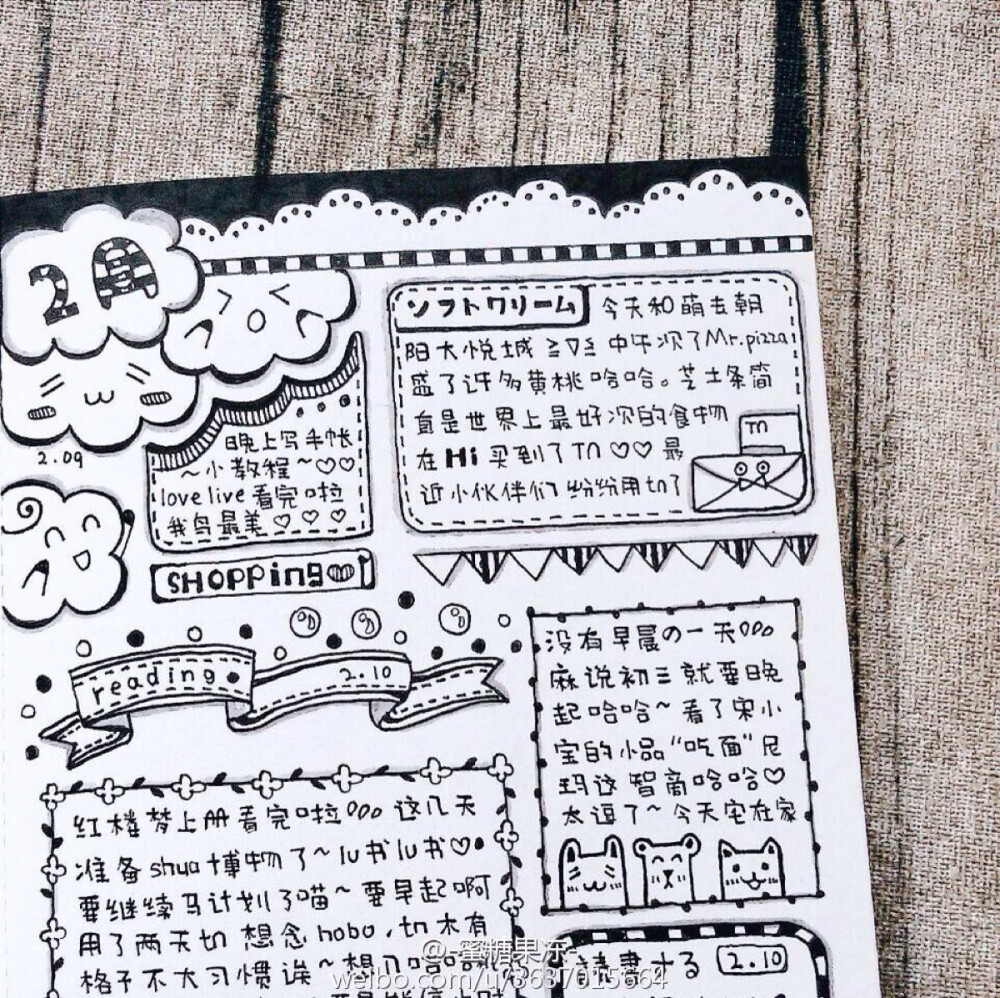 2月
2.09
晚上写手帐
~小教程~♡♡
love live看完啦
我鸟最美♡♡♡
SHOPPing
ソフトクリーム 今天和萌去朝
阳大悦城≧▽≦中午次了Mr.pizza
盛了许多黄桃哈哈。芝士条简
直是世界上最好次的食物
在Hi买到了TN♡♡最
近小伙伴们纷纷用tn了
TN
reading
2.10
没有早晨の一天
麻说初三就要晚
起哈哈~看了宋小
宝的小品"吃面"尼
玛这智商哈哈♡
太逗了~今天宅在家
红楼梦上册看完啦 这几天
准备shua博物了~lu书lu书♡
要继续马计划了喵~要早起啊
用了两天tn想念hobo,tn木有
格子不大习惯诶~想
読書する 2.10
@-蜜糖果东-
weibo.com/u/3637015664